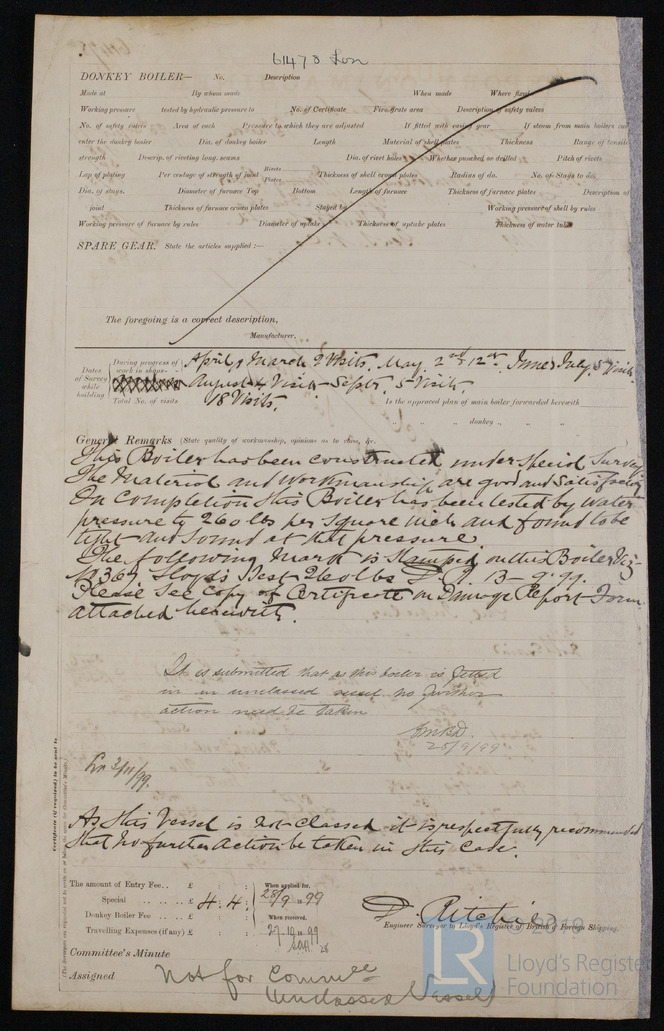 61473 Lon
DONKEY BOILER— No. Description
Made at By whom made When made Where fixed
Working pressure tested by hydraulic pressure to No. of Certificate Fire grate area Description of safety valves
No. of safety valves Area of each Pressure to which they are adjusted If fitted with easing gear If steam from main boilers can
enter the donkey boiler Dia. of donkey boiler Length Material of shell plates Thickness Range of tensile
strength Descrip. of riveting long. seams Dia. of rivet holes Whether punched or drilled Pitch of rivets
Lap of plating Per centage of strength of joint Rivets Plates Thickness of shell crown plates Radius of do. No. of Stays to do.
Dia. of stays. Diameter of furnace Top Bottom Length of furnace Thickness of furnace plates Description of
joint Thickness of furnace crown plates Stayed by Working pressure of shell by rules
Working pressure of furnace by rules Diameter of uptake Thickness of uptake plates Thickness of water tubes
SPARE GEAR. State the articles supplied :—
The foregoing is a correct description,
Manufacturer.
Dates of Survey while building
During progress of work in shops - - April, & March 2 Visits. May. 2nd & 12th. June & July. 5 Visits.
August 4 Visits - Septr. 5 Visits
Total No. of visits 18 Visits.
Is the approved plan of main boiler forwarded herewith
" " donkey " "
General Remarks (State quality of workmanship, opinions as to class, &c.
This Boiler has been constructed under special Survey
The Material and workmanship are good and satisfactory
On Completion this Boiler has been tested by water
pressure to 260 lbs per square inch and found to be
tight and sound at that pressure
The following mark is stamped on this Boiler Viz-
No 367 Lloyds Test 260 lbs D.R. 13-9-99.
Please see Copy of Certificate on Damage Report Form
attached herewith.
It is submitted that as this boiler is fitted
in an unclassed vessel no further
action need be taken
25/9/99
As this Vessel is not Classed it is respectfully recommended
that no further action be taken in this Case.
Certificate (if required) to be sent to
The amount of Entry Fee .. £ : : When applied for,
Special .. .. .. £ 4 . 4 : 28/9 1899
Donkey Boiler Fee .. .. £ : : When received,
Travelling Expenses (if any) £ : : 27.10.1899
D. Ritchie
Engineer Surveyor to Lloyd's Register of British & Foreign Shipping.
Committee's Minute
Assigned Not for Committee
Unclassed Vessel
© 2019
LR
Lloyd's Register
Foundation